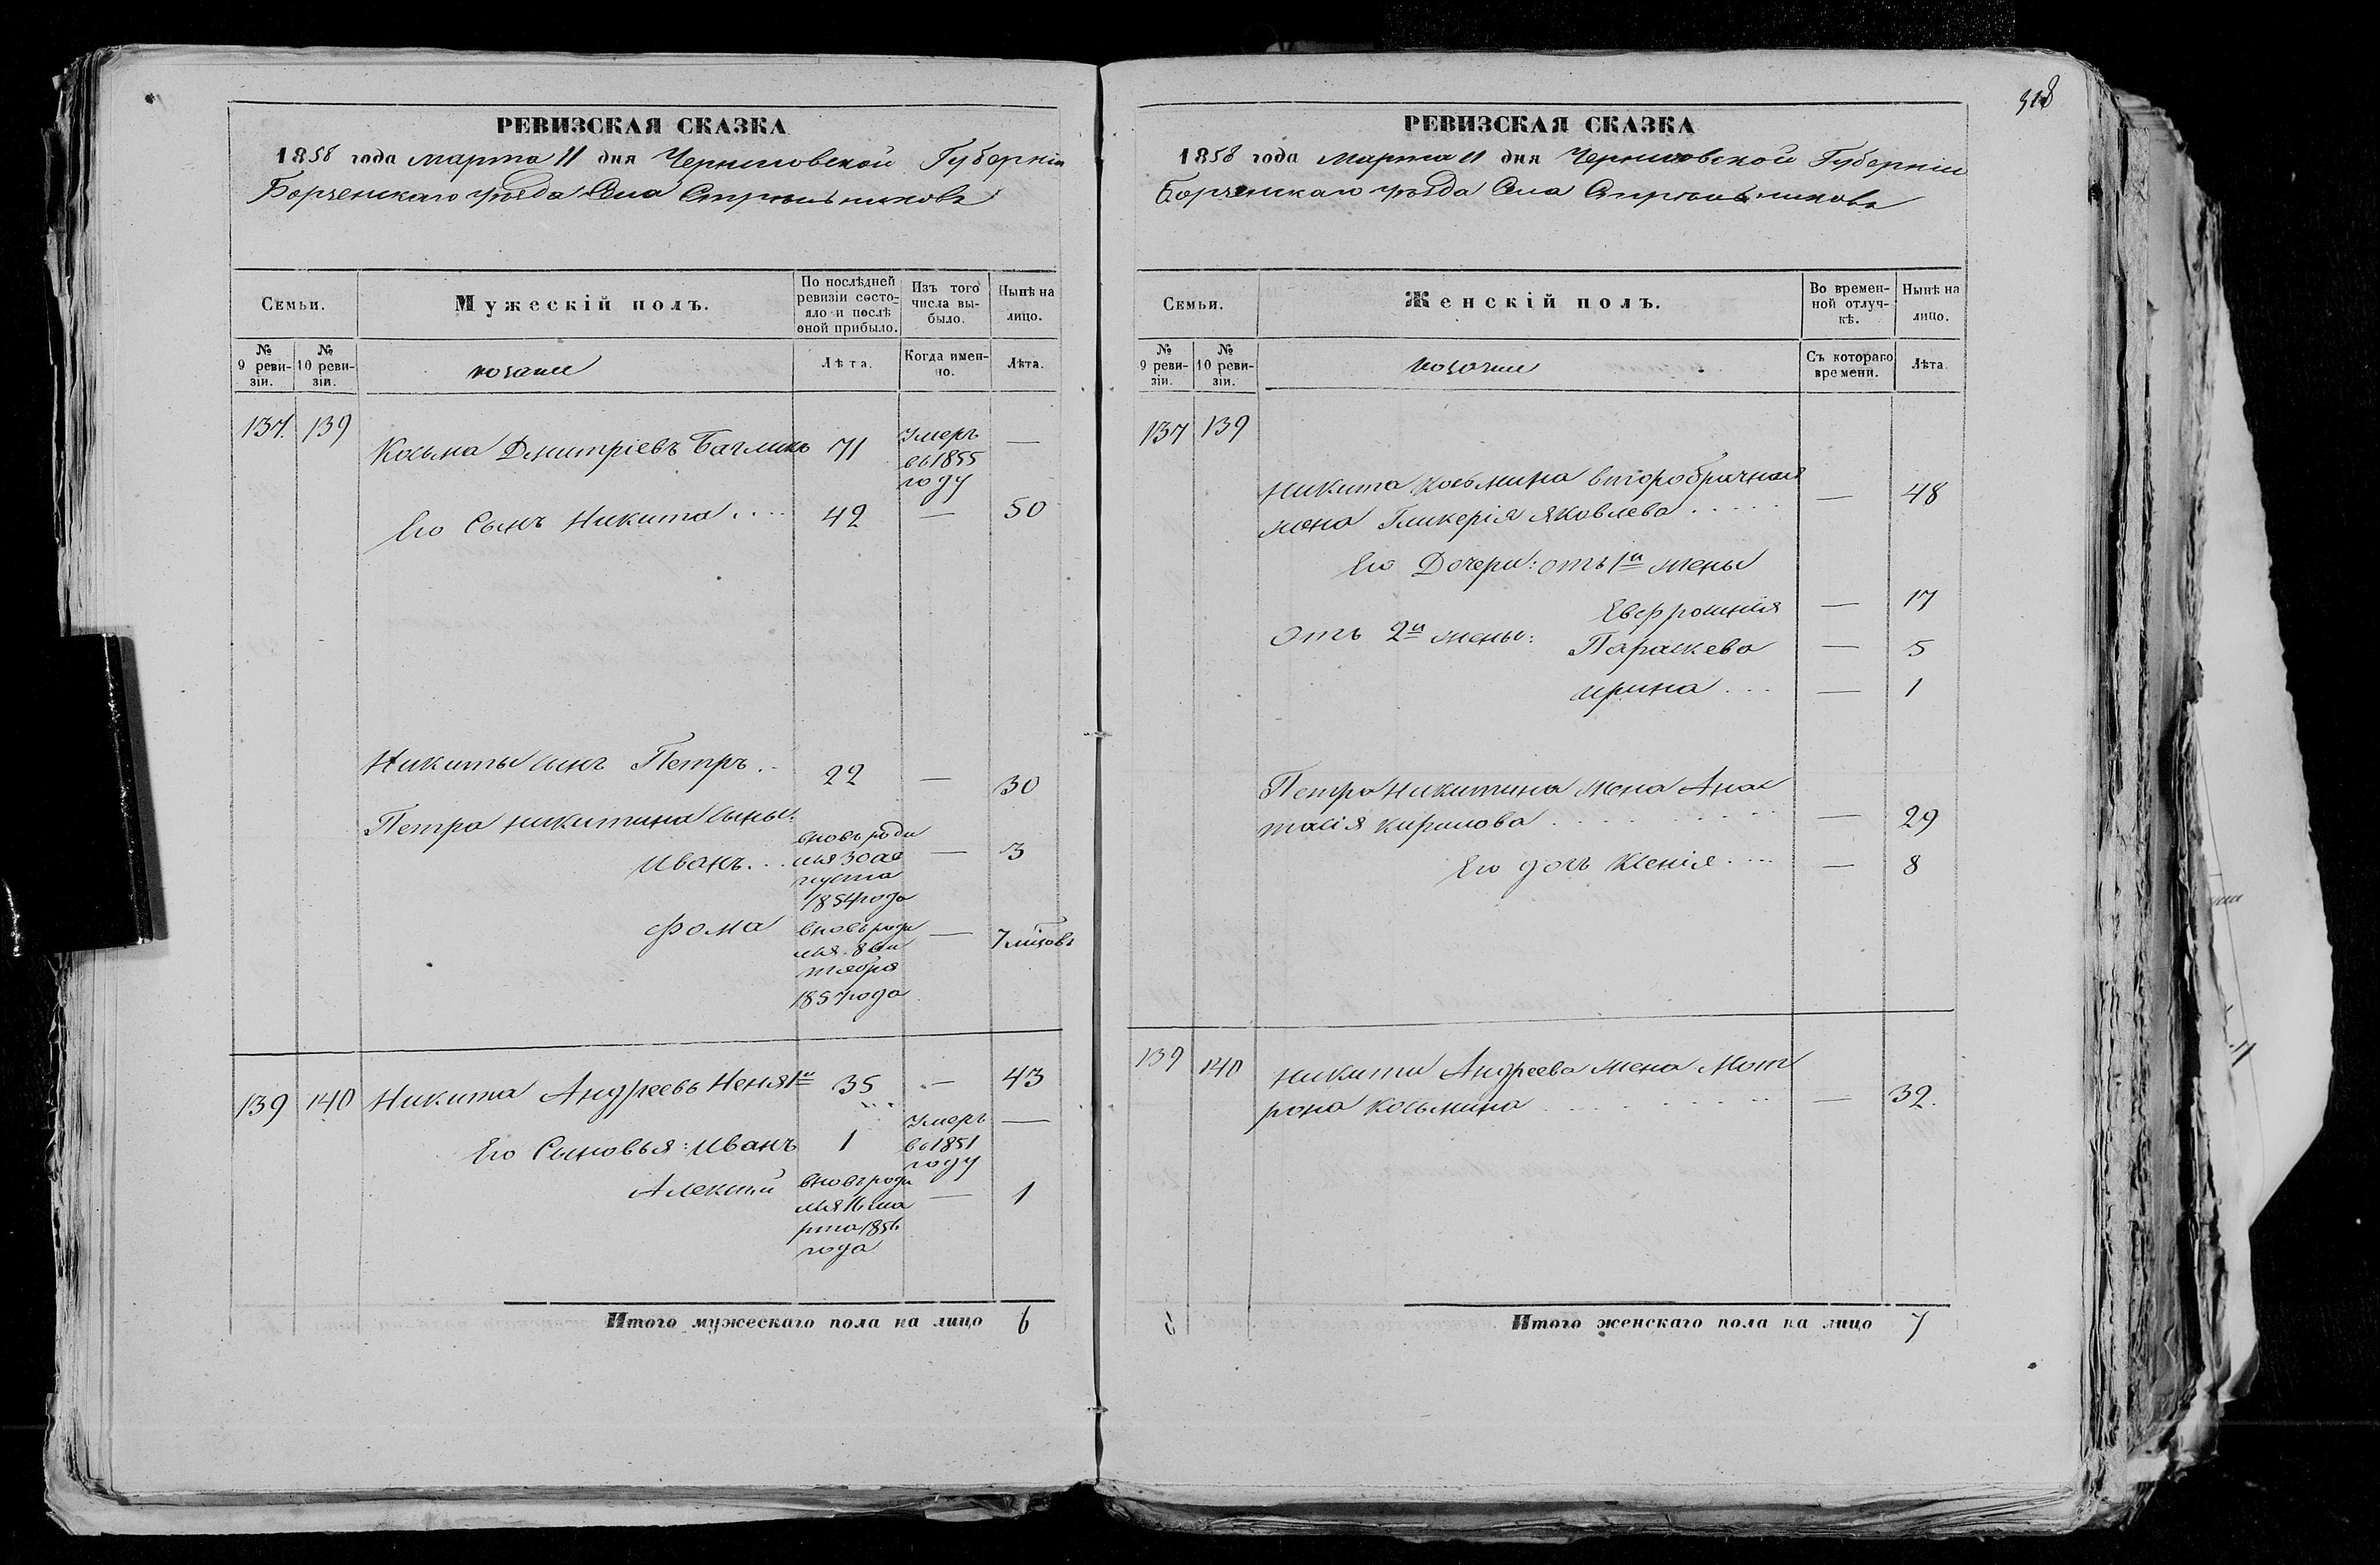 РЕВИЗСКАЯ СКАЗКА
1858 года Марта 11 дня Черниговской Губерніи
Борзенскаго уѣзда Села Стрѣльниковъ
Семьи.
Мужескій полъ.
По послѣдней ревизіи состояло и послѣ оной прибыло.
Изъ того числа выбыло.
Нынѣ на лицо.
№ 9 ревизіи.
№ 10 ревизіи.
козаки
Лѣта.
Когда именно.
Лѣта.
137. 139
Косьма Дмитріевъ 71 Умеръ —
въ 1855
году
Его Сынъ Никита .... 42 — 50
Никиты сынъ Петръ .. 22 — 30
Петра Никитина сыны:
Иванъ... вновь роди — 3
лся 30 ав
густа
1854 года
Фома вновь роди — 7 місяцовъ
лся 8 сен
тября
1857 года
139 140 Никита Андреевъ 35 — 43
Его Сыновья: Иванъ 1 Умеръ —
въ 1851
году
Алексѣй вновь роди — 1
лся 16 ма
рта 1856
года
Итого мужескаго пола на лицо 6
РЕВИЗСКАЯ СКАЗКА
1858 года Марта 11 дня Черниговской Губерніи
Борзенскаго уѣзда Села Стрѣльниковъ
Семьи.
Женскій полъ.
Во временной отлучкѣ.
Нынѣ на лицо.
№ 9 ревизіи.
№ 10 ревизіи.
козачки
Съ котораго времени.
Лѣта.
137 139
Никита Косьмина второбрачная
жена Гликерія Яковлева ..... — 48
Его Дочери: отъ 1й жены
Евфросинія — 17
Отъ 2й жены: Параскева — 5
Ирина ... — 1
Петра Никитина жена Анас
тасія Кирилова ........ — 29
Его дочь Ксенія .... — 8
139 140 Никиты Андреева жена Мот
рона Косьмина ........ — 32.
Итого женскаго пола на лицо 7